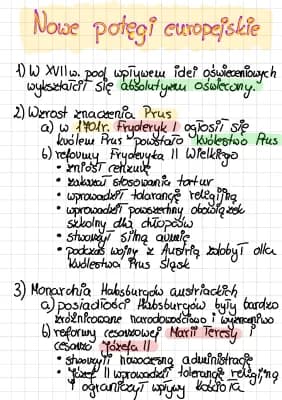 Nowe potęgi europejskie
1) W XVII w. pod wpływem idei oświeceniowych
wykształcił się absolutyzm oświecony.
2) Wzrost znaczenia Prus
a) w 1701r. Fryderyk I ogłosił się
królem Prus powstało Królestwo Prus
b) reformy Fryderyka II Wielkiego
• zniósł cenzurę
• zakazał stosowania tortur
• wprowadził tolerancję religijną
• wprowadził powszechny obowiązek
szkolny dla chłopów
• stworzył silną armię
• podczas wojny z Austrią zdobył dla
królestwa Prus Śląsk
3) Monarchia Habsburgów austriackich
a) posiadłości Habsburgów były bardzo
zróżnicowane narodowościowo i wyznaniowo
b) reformy cesarzowej Marii Teresy
cesarza Józefa II
• stworzyli nowoczesną administrację
• Józef II wprowadził tolerancję religijną
i ograniczył wpływy kościoła